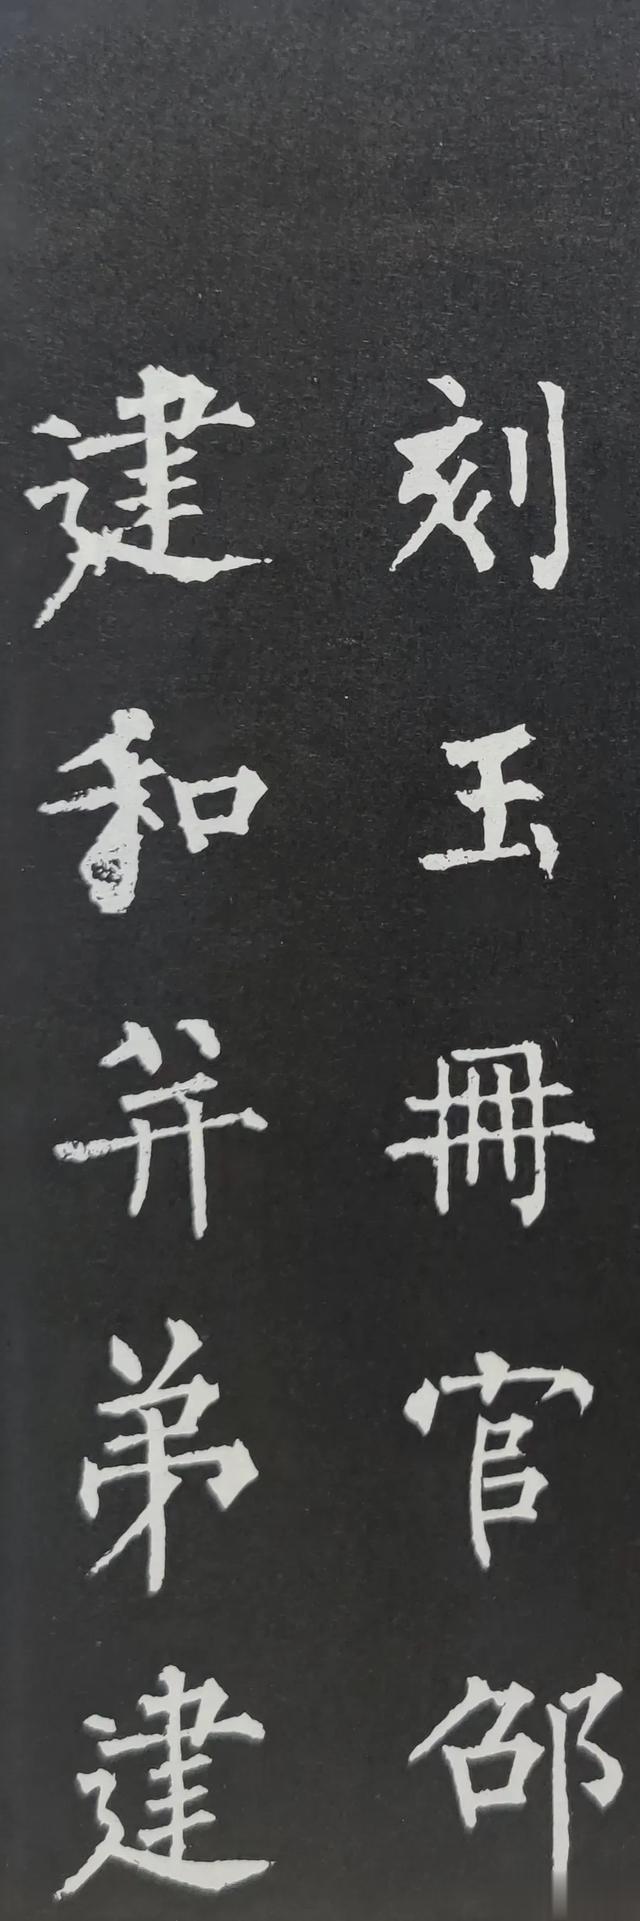 刻玉冊官邵
建和并弟建